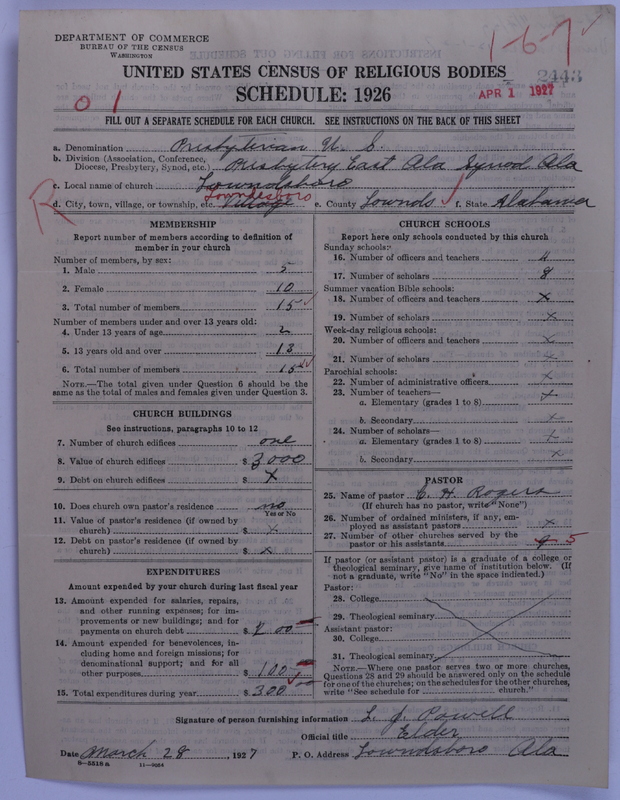 DEPARTMENT OF COMMERCE
BUREAU OF THE CENSUS
WASHINGTON
1-6-7
UNITED STATES CENSUS OF RELIGIOUS BODIES
2443
SCHEDULE: 1926
APR 1 1927
01
FILL OUT A SEPARATE SCHEDULE FOR EACH CHURCH. SEE INSTRUCTIONS ON THE BACK OF THIS SHEET
a. Denomination Presbyterian U. S.
b. Division (Association, Conference, Diocese, Presbytery, Synod, etc.) Presbytery East Ala Synod Ala
c. Local name of church Lowndsboro
R
Lowndesboro
d. City, town, village, or township, etc. Village e. County Lownds f. State Alabama
MEMBERSHIP
Report number of members according to definition of
member in your church
Number of members, by sex:
1. Male 5
2. Female 10
3. Total number of members 15
Number of members under and over 13 years old:
4. Under 13 years of age 2
5. 13 years old and over 13
6. Total number of members 15
NOTE.—The total given under Question 6 should be
same as the total of males and females given under Question 3.
CHURCH BUILDINGS
See instructions, paragraphs 10 to 12
7. Number of church edifices one
8. Value of church edifices $ 3000
9. Debt on church edifices $ x
10. Does church own pastor's residence no
Yes or No
11. Value of pastor's residence (if owned by
church) $ x
12. Debt on pastor's residence (if owned by
church) $ x
EXPENDITURES
Amount expended by your church during last fiscal year
13. Amount expended for salaries, repairs,
and other running expenses; for im-
provements or new buildings; and for
payments on church debt $ 200
14. Amount expended for benevolences, in-
cluding home and foreign missions; for
denominational support; and for all
other purposes $ 100
15. Total expenditures during year $ 300
CHURCH SCHOOLS
Report here only schools conducted by this church
Sunday schools:
16. Number of officers and teachers 4
17. Number of scholars 8
Summer vacation Bible schools:
18. Number of officers and teachers x
19. Number of scholars x
Week-day religious schools:
20. Number of officers and teachers x
21. Number of scholars x
Parochial schools:
22. Number of administrative officers x
23. Number of teachers—
a. Elementary (grades 1 to 8) x
b. Secondary x
24. Number of scholars—
a. Elementary (grades 1 to 8) x
b. Secondary x
PASTOR
25. Name of pastor C. H. Rogers
(If church has no pastor, write "None")
26. Number of ordained ministers, if any, em-
ployed as assistant pastors x
27. Number of other churches served by the
pastor or his assistants 5
If pastor (or assistant pastor) is a graduate of a college or
theological seminary, give name of institution below. (If
not a graduate, write "No" in the space indicated.)
Pastor:
28. College
29. Theological seminary
Assistant pastor:
30. College
31. Theological seminary
NOTE.—Where one pastor serves two or more churches,
Questions 28 and 29 should be answered only on the schedule
for one of the churches; on the schedules for the other churches,
write "See schedule for church."
Signature of person furnishing information L. J. Powell
Official title Elder
Date March 28, 1927 P. O. Address Lowndsboro Ala
8-5518a 11-9064